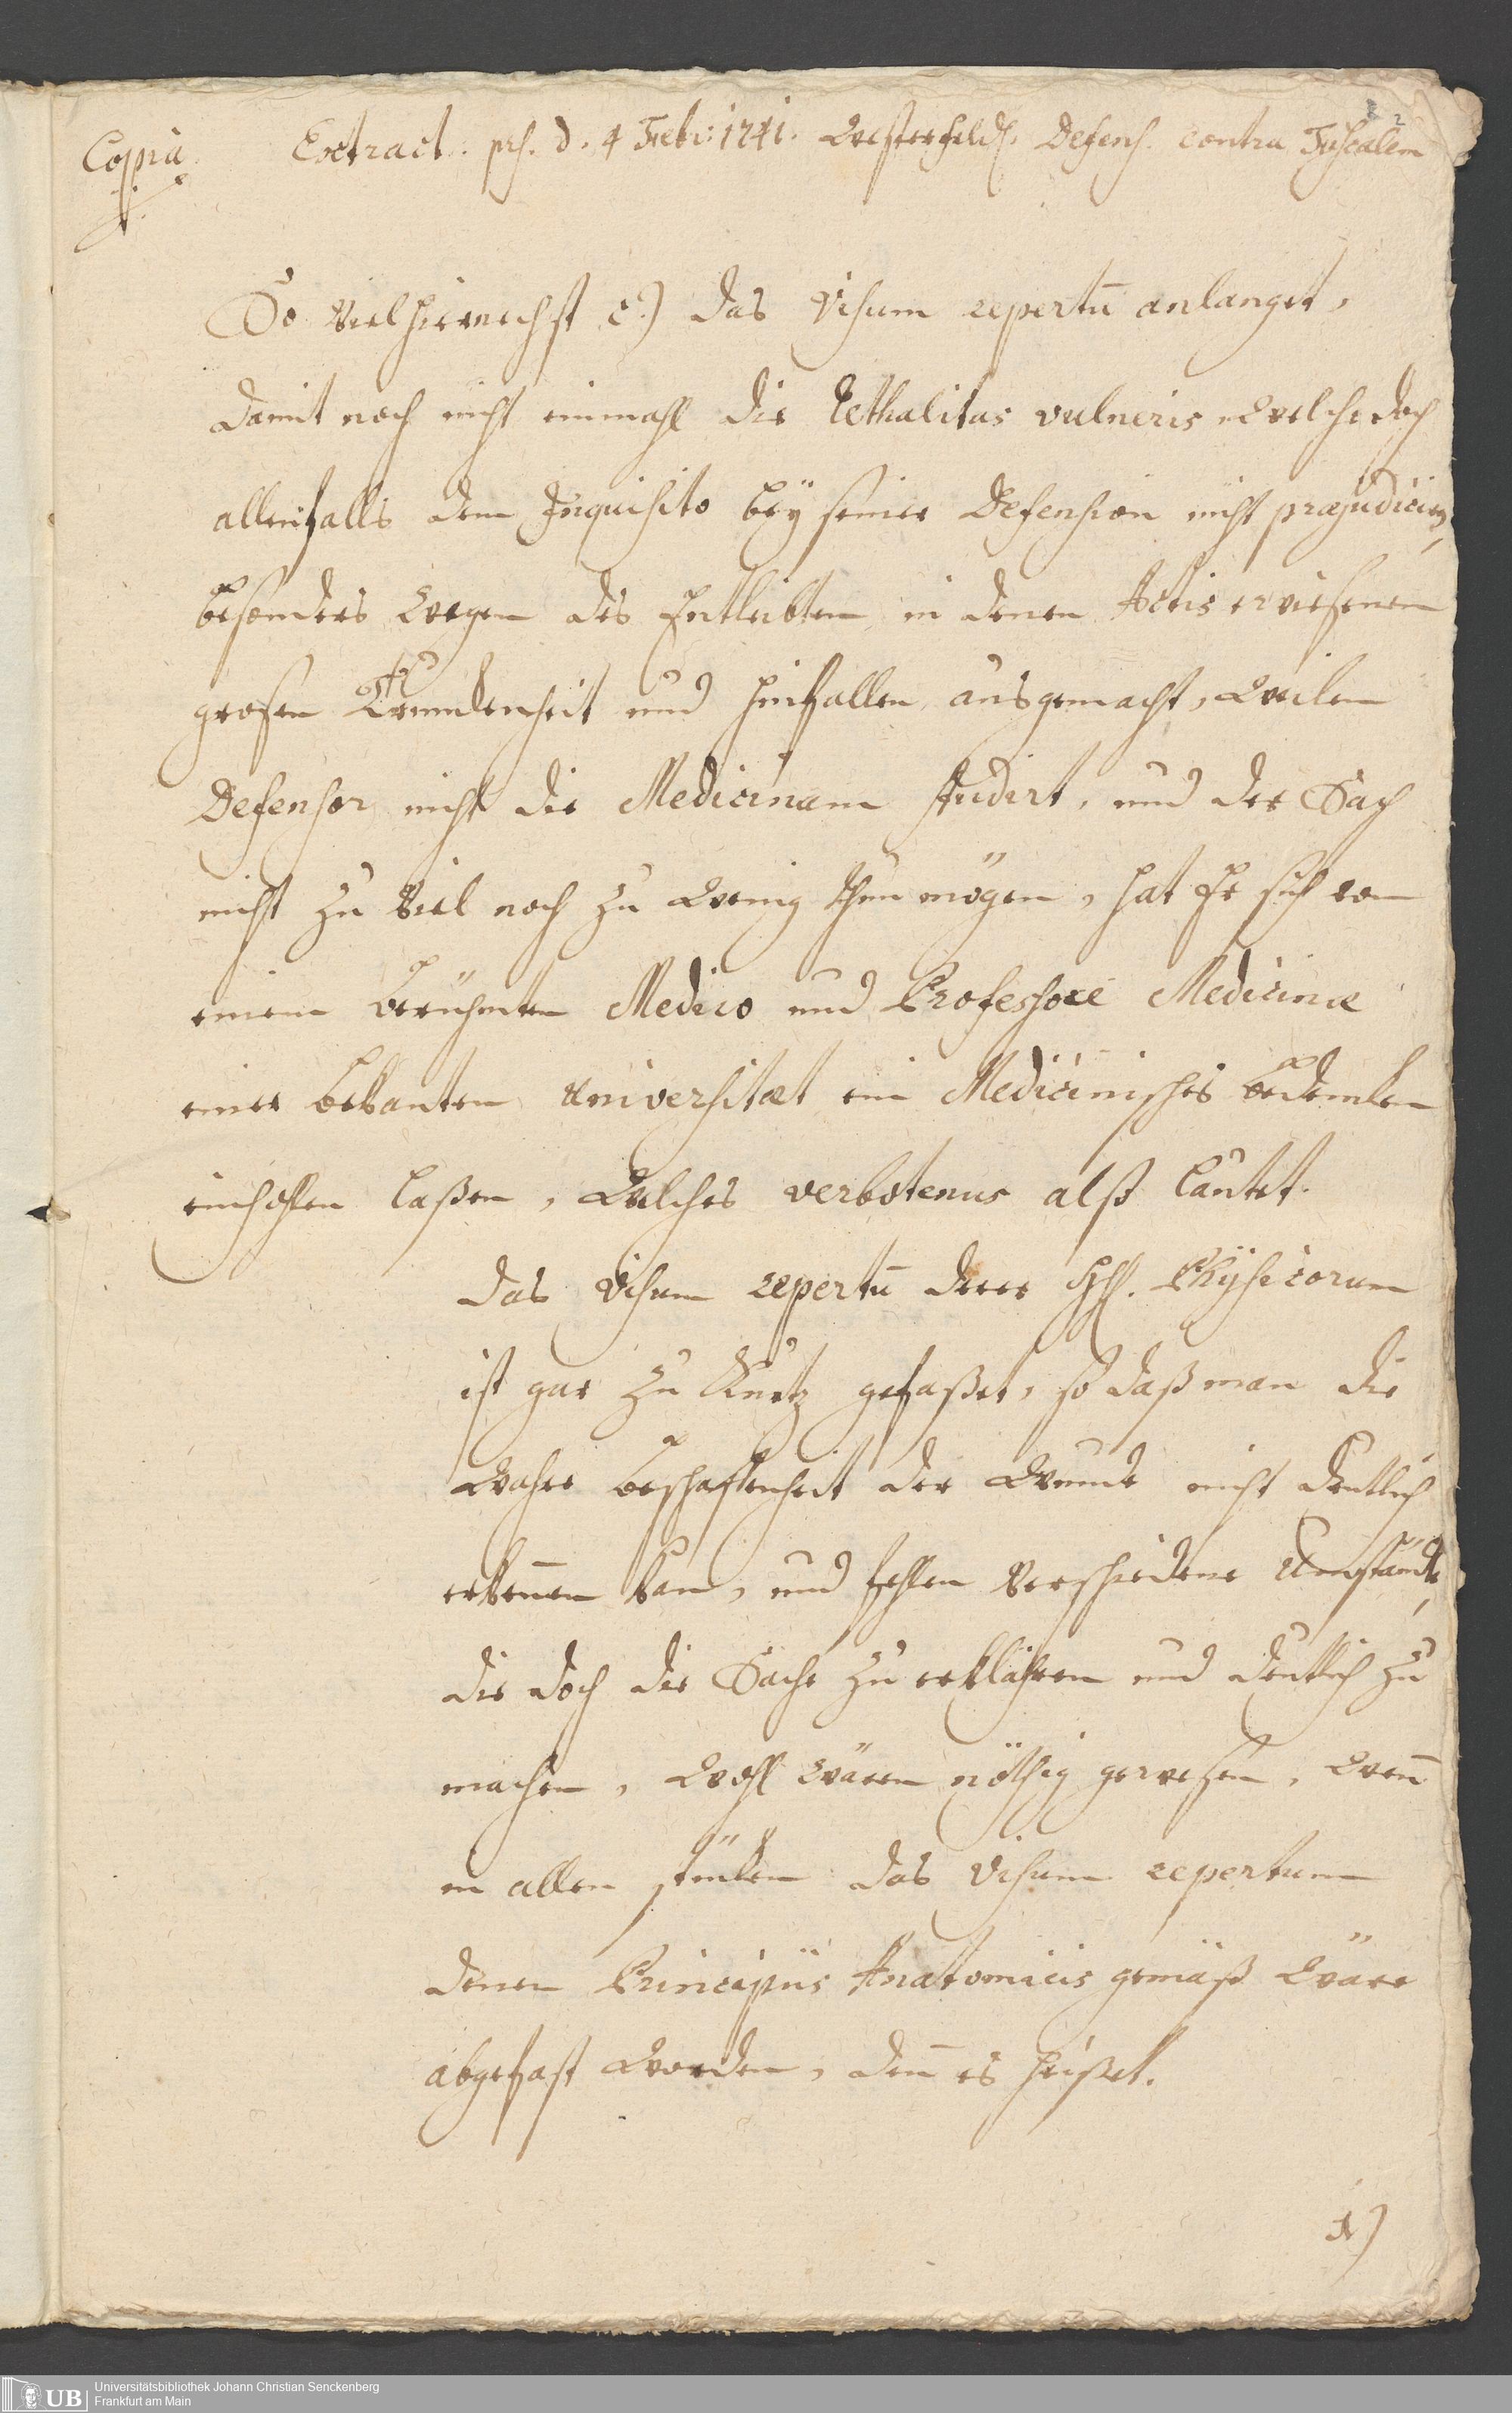 Copia
Extract. prs. d. 4 Febr: 1741. Westerfeld. Defens. contra Fiscalem
So viel hiernechst c.) das Visum repertū anlanget,
damit noch nicht einmahl die lethalitas vulneris, welche doch
allenfalls dem Inquisito bey seiner Defension nicht præjudicirt,
besonders wegen des Entleibten in denen Actis erwiesenen
großen Trunckenheit und hinfallen, ausgemacht, weilen
Defensor nicht die Medicinam studirt, und der Sach
nicht zu viel noch zu wenig thun mögen, hat Er sich von
einem berühmten Medico und Professore Medicinæ
einer bekanten Universitæt ein Medicinisches bedencken
einhohlen laßen, welches verbotenus also lautet.
das Visum repertū derer HH. Physicorum
ist gar zu kurtz gefaßet, so daß man die
wahre beschaffenheit der Wunde nicht deutlich
erkeñen kan, und fehlen verschiedene Umstände,
die doch die Sache zu erklähren und deutlich zu
machen, wohl wären nöthig gewesen, weñ
in allen stücken das Visum repertum
denen Principiis Anatomicis gemäß wäre
abgefast worden, deñ es heißet.
1)
UB
Universitätsbibliothek Johann Christian Senckenberg
Frankfurt am Main